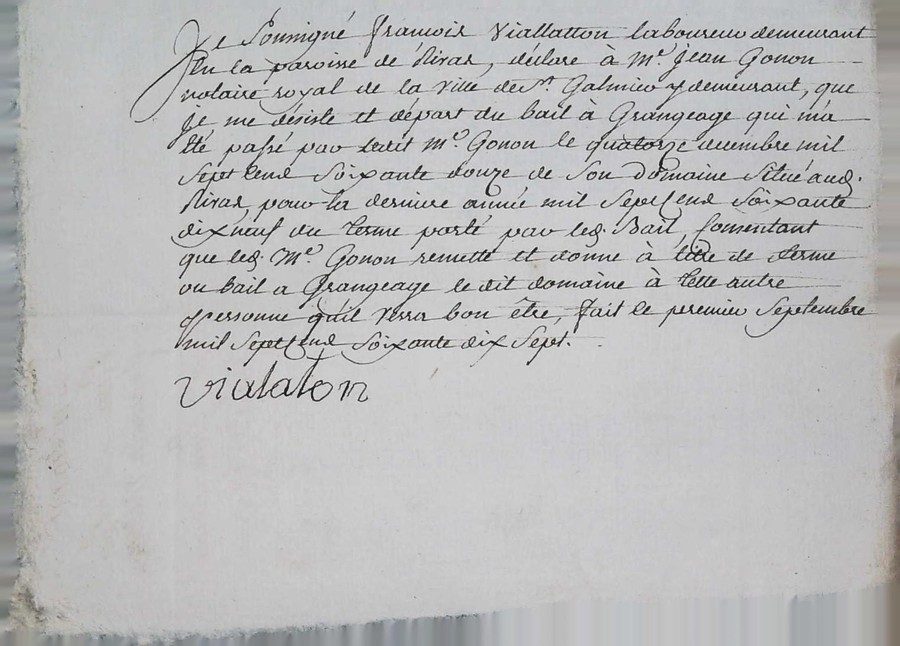 Je Soussigné françois Viallatton laboureur demeurant
En la paroisse de Rivas, déclare à Me. jean Gonon
notaire royal de la ville de St. Galmier y demeurant, que
je me désiste et départ du bail à Grangeage qui m'a
été passé par ledit Me. Gonon le quatorze decembre mil
Sept Cend Soixante douze de Son domaine Situé aud.
Rivas pour la derniere année mil Sept Cend Soixante
dix neuf du terme porté par led. Bail, Consentant
que led. Me. Gonon remette et donne à titre de ferme
ou bail a Grangeage le dit domaine à telle autre
personne qu'il verra bon être, fait le premier Septembre
mil Sept Cend Soixante dix Sept.
vialaton